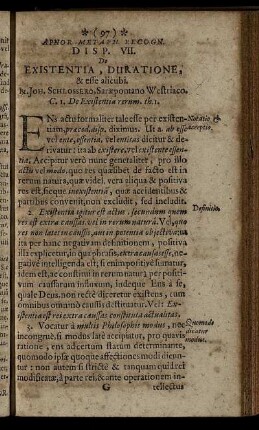 * (97) *
APHOR. METAPH. RECOGN.
DISP. VII.
De
EXISTENTIA, DURATIONE,
& esse alicubi.
C. 1. De Existentia rerum. th. 1.
ENs actu formaliter tale esse per existen-
tiam, præced. disp. diximus. Ut a. ab esse
vel ente, essentia, vel entitas dicitur & de-
rivatur: ita ab existere, vel existente Existen-
tia. Accipitur verò nunc generaliter, pro illo
actu vel modo, quæ videl. vera aliqua & positiva
res est, sicque inexistentiâ, quæ accidentibus &
partibus convenit, non excluditur, sed includit.
2. Existentia igitur est actus, secundum quem
res est extra caussas, vel in rerum natura. Vel, quo
res non latet in caussis, aut in potentia objectiva; ut
ita per hanc negativam definitionem, positiva
illa explicetur, in qua phrasis, extra caussas esse, ne-
gative intelligenda est, si enim positivè sumatur,
idem est, ac consistere in rerum natura, per positi-
vum caussarum influxum, indeque Ens à se,
quale Deus, non rectè diceretur existens, cum
omnibus omnino caussis destituatur. Vel: Ex-
istentia est rei extra caussas constituta actualitas.
3. Vocatur à multis Philosophis modus, nec
incongruè, si modus latè accipitur, pro quavis
ratione, ens ad certum statum determinante,
quomodo ipsæ quoque affectiones modi dicun-
tur: non autem si strictè & tanquam quid rei
modificatæ, à parte rei, & ante operationem in-
G tellectus
Notatio &
acceptio.
Definitio.
Quomodo
dicatur
modus.